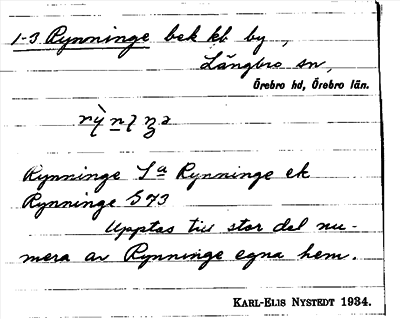 1-3 Rynninge bek kl. by,
Längbro sn,
Örebro hd, Örebro län.
Rynninge Sa Rynninge ek
Rynninge G 73
Upptas till stor del nu-
mera av Rynninge egna hem.
KARL-ELIS NYSTEDT 1934.